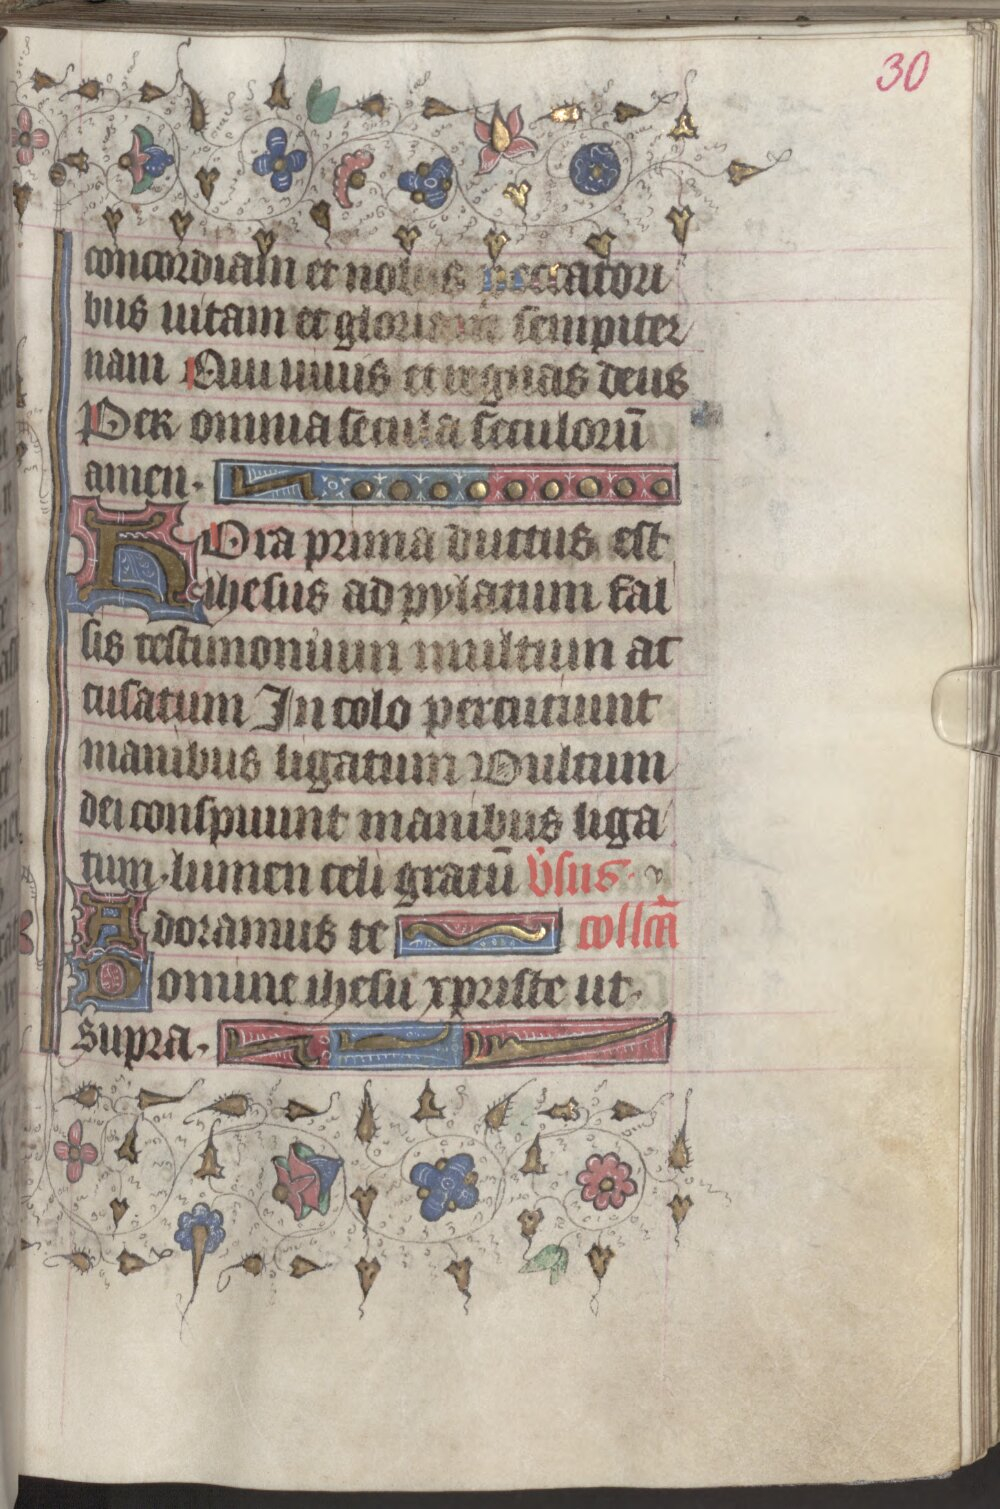 30
concordiam et nobis peccatori
bus uitam et gloriam sempiter
nam Qui uiuis et regnas deus
Per omnia secula seculorū
amen.
HOra prima ductus est
ihesus ad pylatum fal
sis testimonium multum ac
cusatum In colo percutiunt
manibus ligatum Vultum
dei conspuunt manibus liga
tum lumen celi gratū v̉sus. v
Adoramus te collcā
Domine ihesu xpriste ut.
supra.